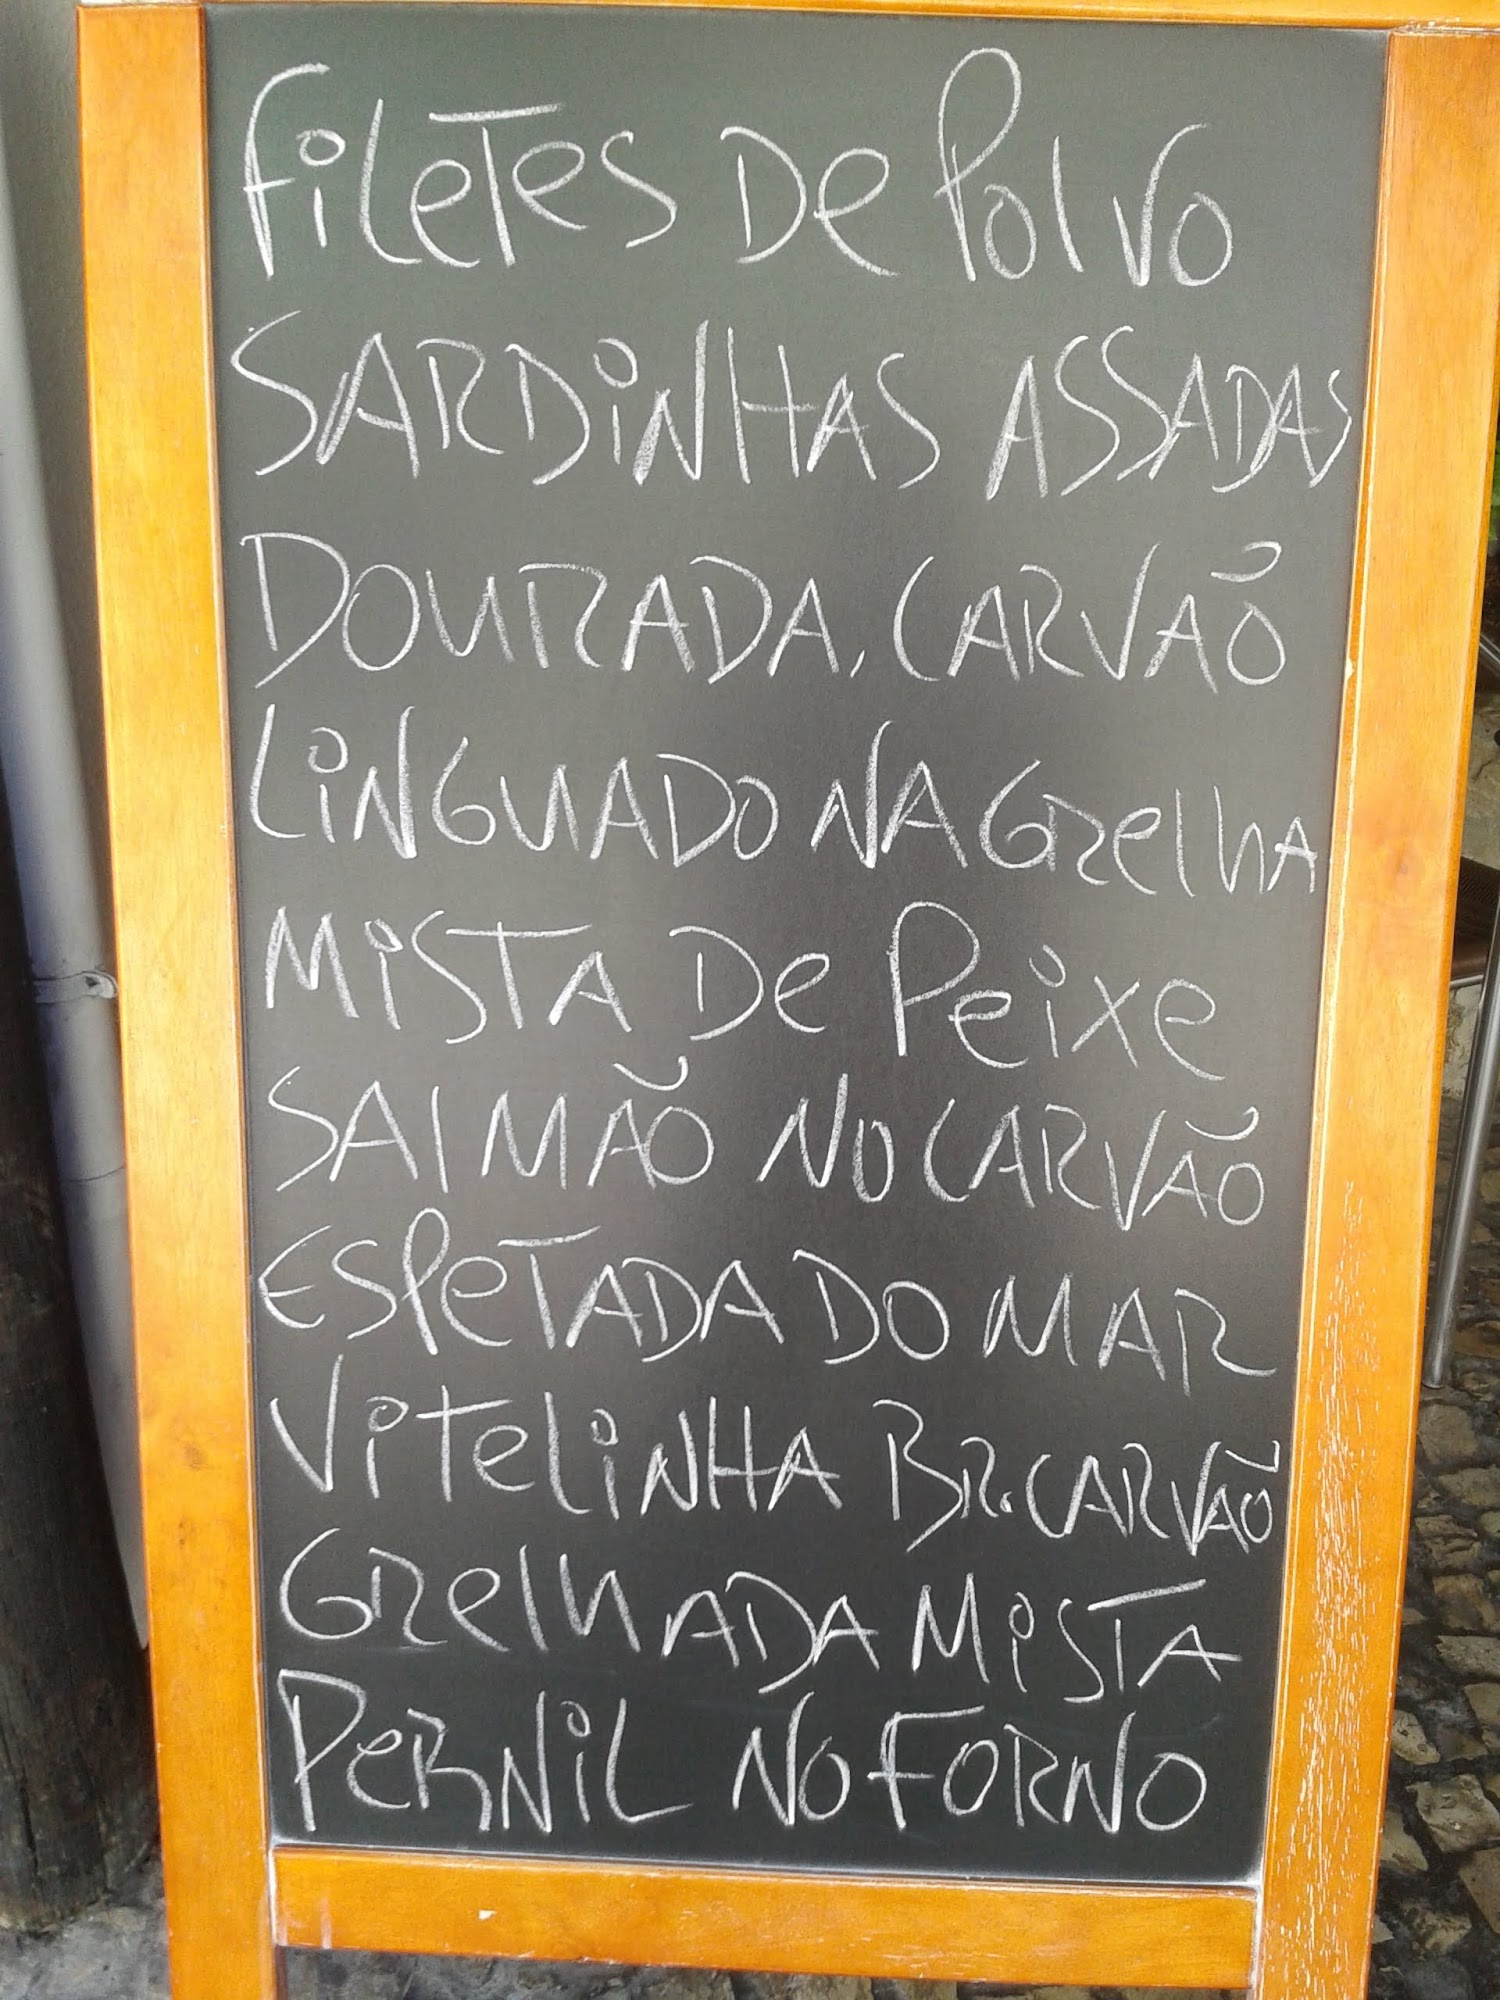 Filetes de Polvo
SARDINHAS ASSADAS
DOURADA. CARVÃO
LINGUADO NA GRELHA
MISTA DE PEIXE
SALMÃO NO CARVÃO
ESPETADA DO MAR
VITELINHA BR. CARVÃO
GRELHADA MISTA
PERNIL NO FORNO